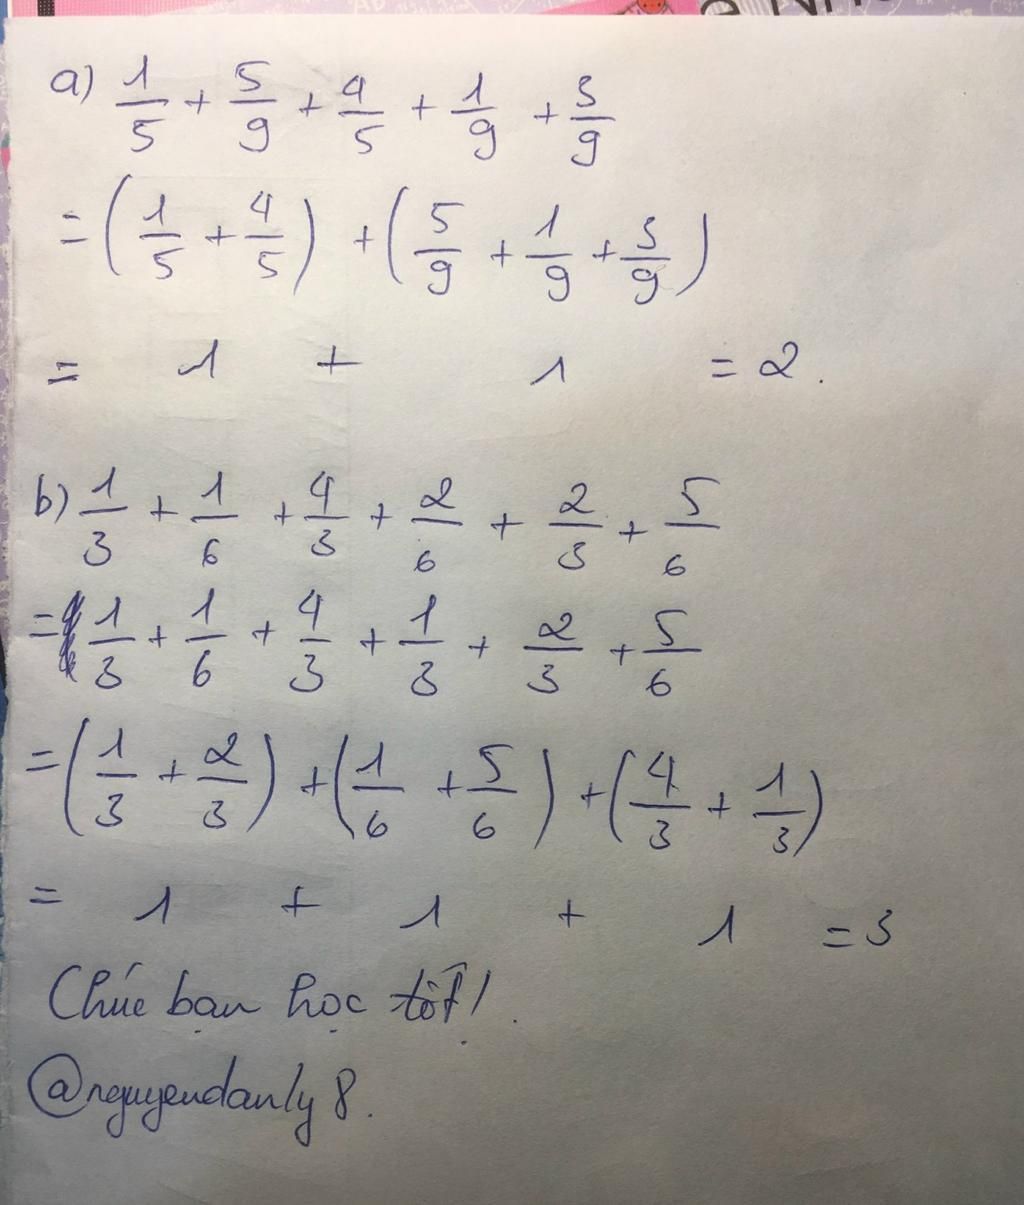 a) 1/5 + 5/9 + 4/5 + 1/9 + 3/9
= (1/5 + 4/5) + (5/9 + 1/9 + 3/9)
= 1 + 1 = 2.
b) 1/3 + 1/6 + 4/3 + 2/6 + 2/3 + 5/6
= 1/3 + 1/6 + 4/3 + 1/3 + 2/3 + 5/6
= (1/3 + 2/3) + (1/6 + 5/6) + (4/3 + 1/3)
= 1 + 1 + 1 = 3
Chúc bạn học tốt!
@nguyendanly8.